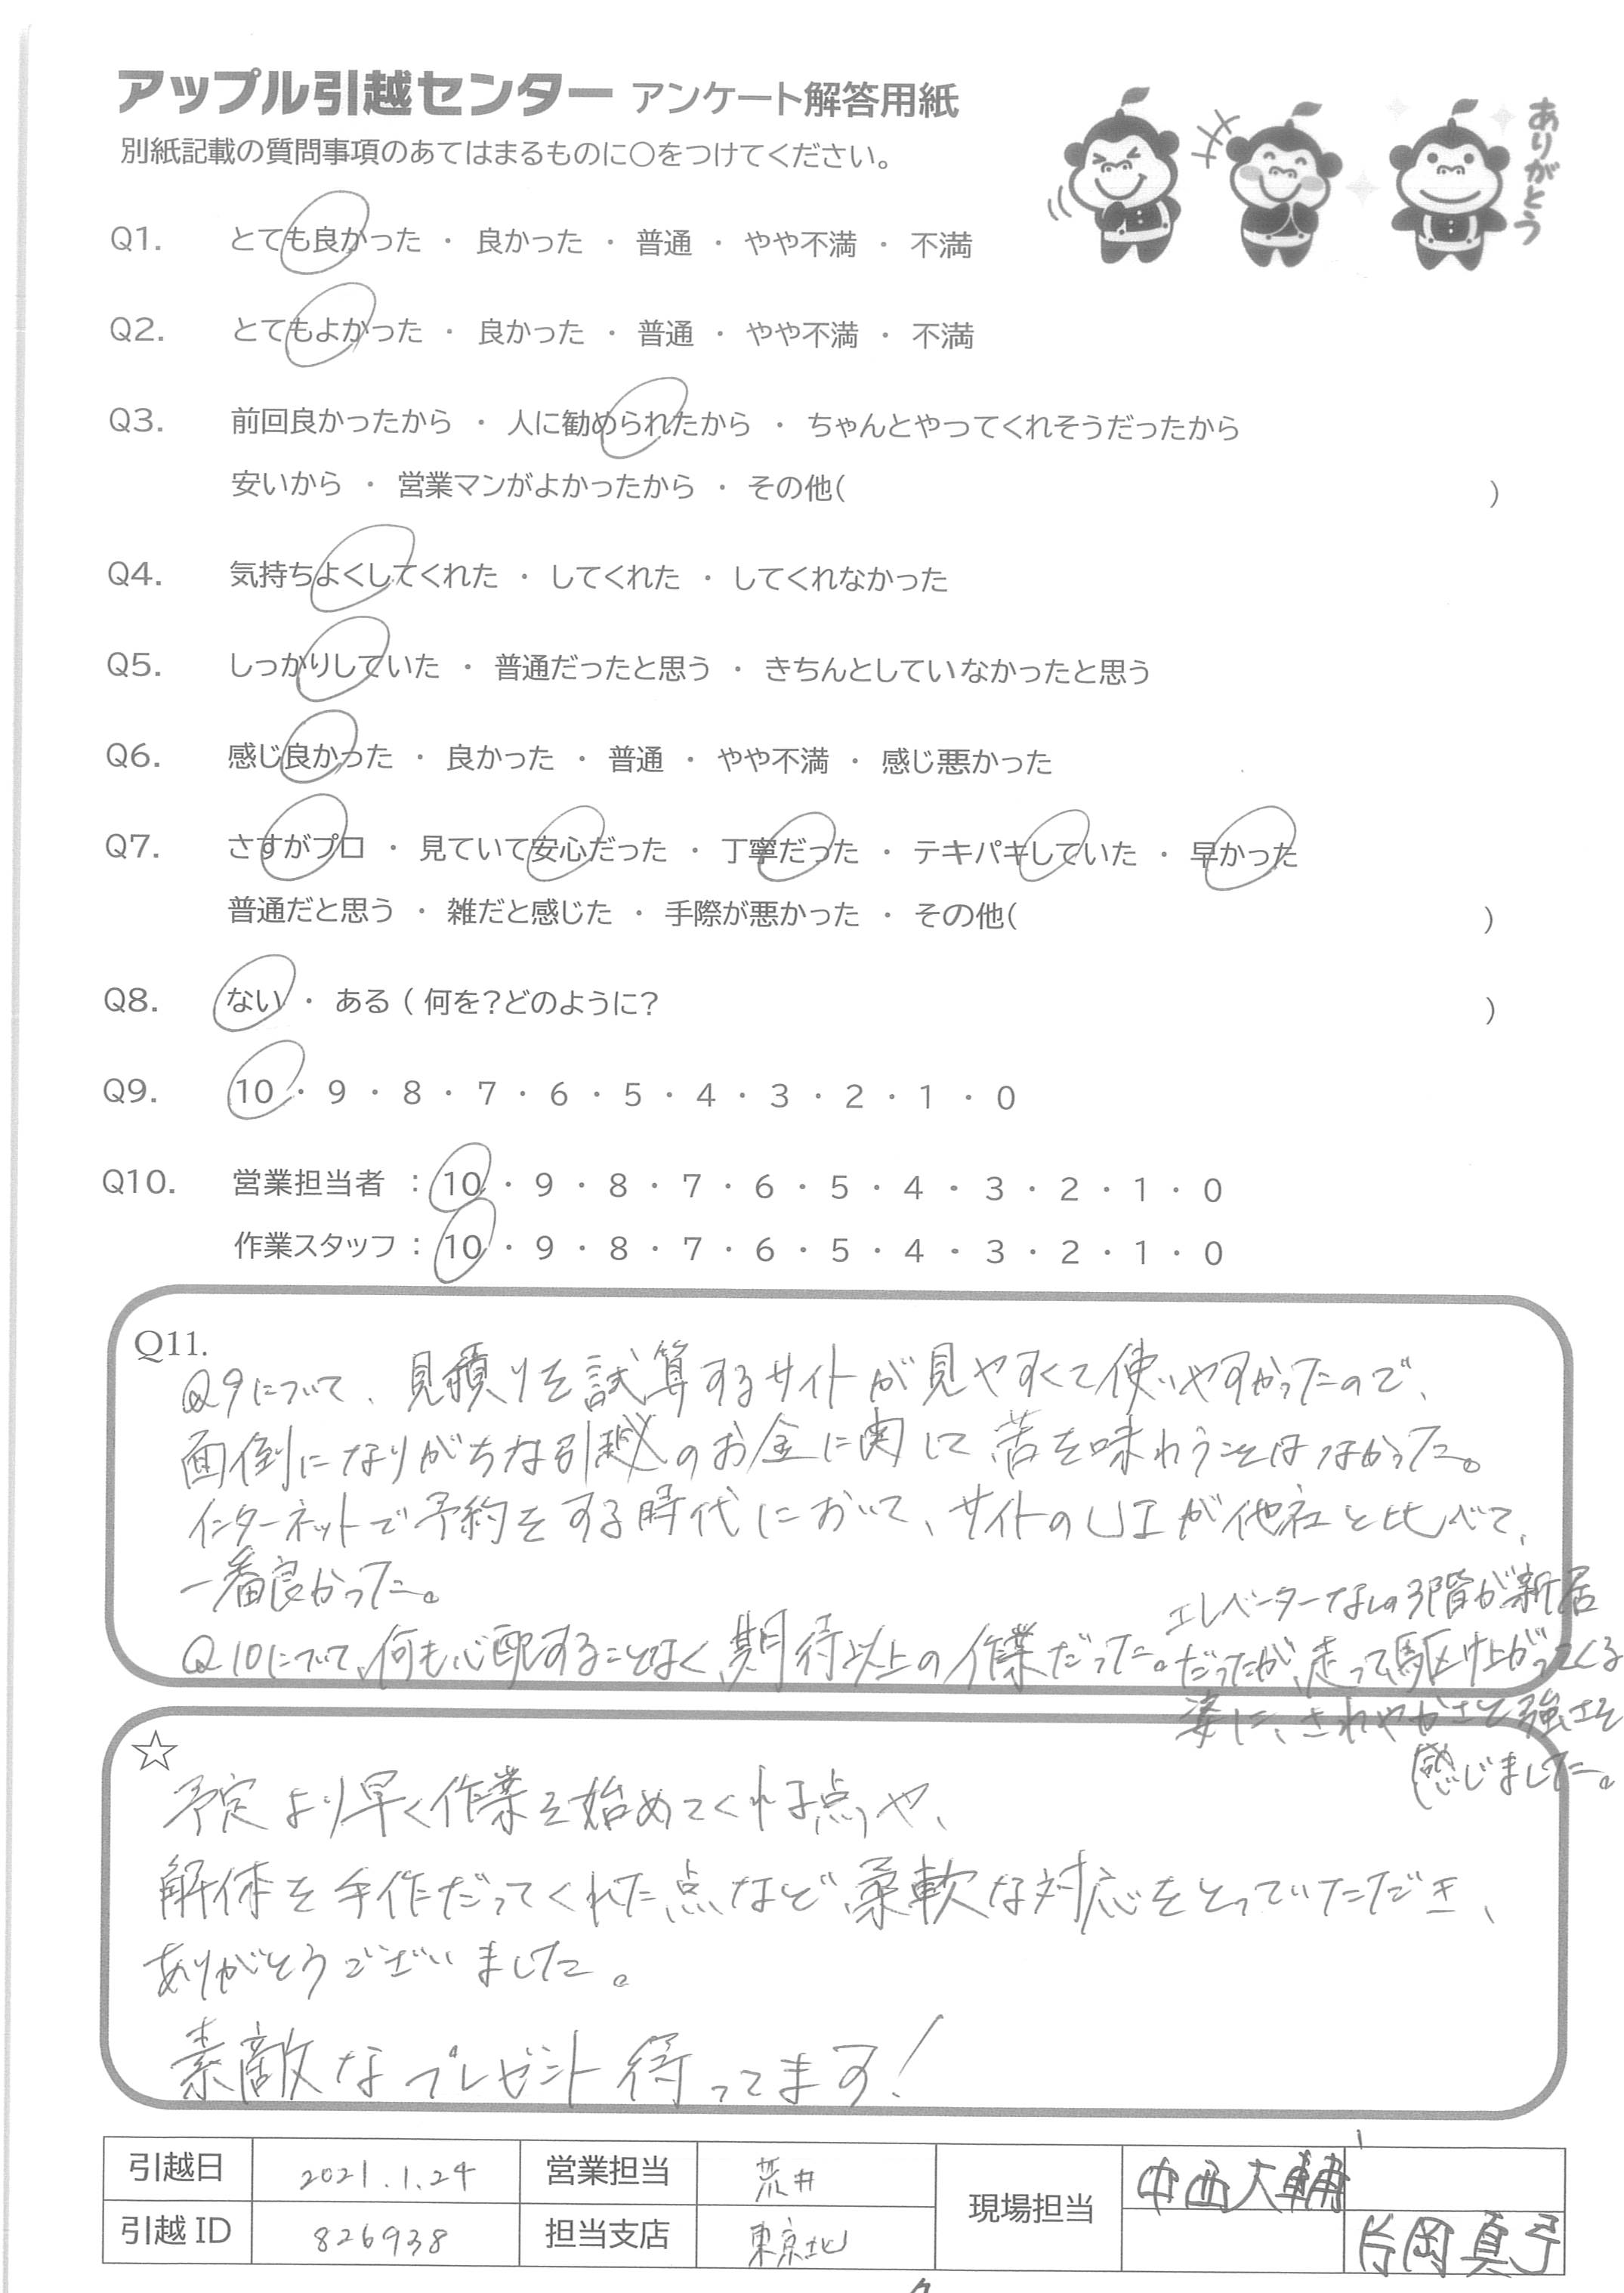 アップル引越センター アンケート解答用紙
別紙記載の質問事項のあてはまるものに○をつけてください。
ありがとう
Q1. とても良かった ・ 良かった ・ 普通 ・ やや不満 ・ 不満
Q2. とてもよかった ・ 良かった ・ 普通 ・ やや不満 ・ 不満
Q3. 前回良かったから ・ 人に勧められたから ・ ちゃんとやってくれそうだったから
安いから ・ 営業マンがよかったから ・ その他( )
Q4. 気持ちよくしてくれた ・ してくれた ・ してくれなかった
Q5. しっかりしていた ・ 普通だったと思う ・ きちんとしていなかったと思う
Q6. 感じ良かった ・ 良かった ・ 普通 ・ やや不満 ・ 感じ悪かった
Q7. さすがプロ ・ 見ていて安心だった ・ 丁寧だった ・ テキパキしていた ・ 早かった
普通だと思う ・ 雑だと感じた ・ 手際が悪かった ・ その他( )
Q8. ない ・ ある ( 何を?どのように? )
Q9. 10 ・ 9 ・ 8 ・ 7 ・ 6 ・ 5 ・ 4 ・ 3 ・ 2 ・ 1 ・ 0
Q10. 営業担当者 : 10 ・ 9 ・ 8 ・ 7 ・ 6 ・ 5 ・ 4 ・ 3 ・ 2 ・ 1 ・ 0
作業スタッフ : 10 ・ 9 ・ 8 ・ 7 ・ 6 ・ 5 ・ 4 ・ 3 ・ 2 ・ 1 ・ 0
Q11.
Q9について、見積りを試算するサイトが見やすくて使いやすかったので、
面倒になりがちな引越のお金に関して苦を味わうことはなかった。
インターネットで予約をする時代において、サイトのUIが他社と比べて、
一番良かった。
Q10について、何も心配することなく、期待以上の作業だった。
エレベーターなしの3階が新居
だったが、走って駆け上がってくる
姿に、さわやかさと強さを
感じました。
☆
予定より早く作業を始めてくれる点や、
解体を手伝だってくれた点など柔軟な対応をとっていただき、
ありがとうございました。
素敵なプレゼント待ってます!
引越日 2021.1.24 営業担当 荒井 現場担当 中西大輔
引越ID 826938 担当支店 東京北 片岡真子